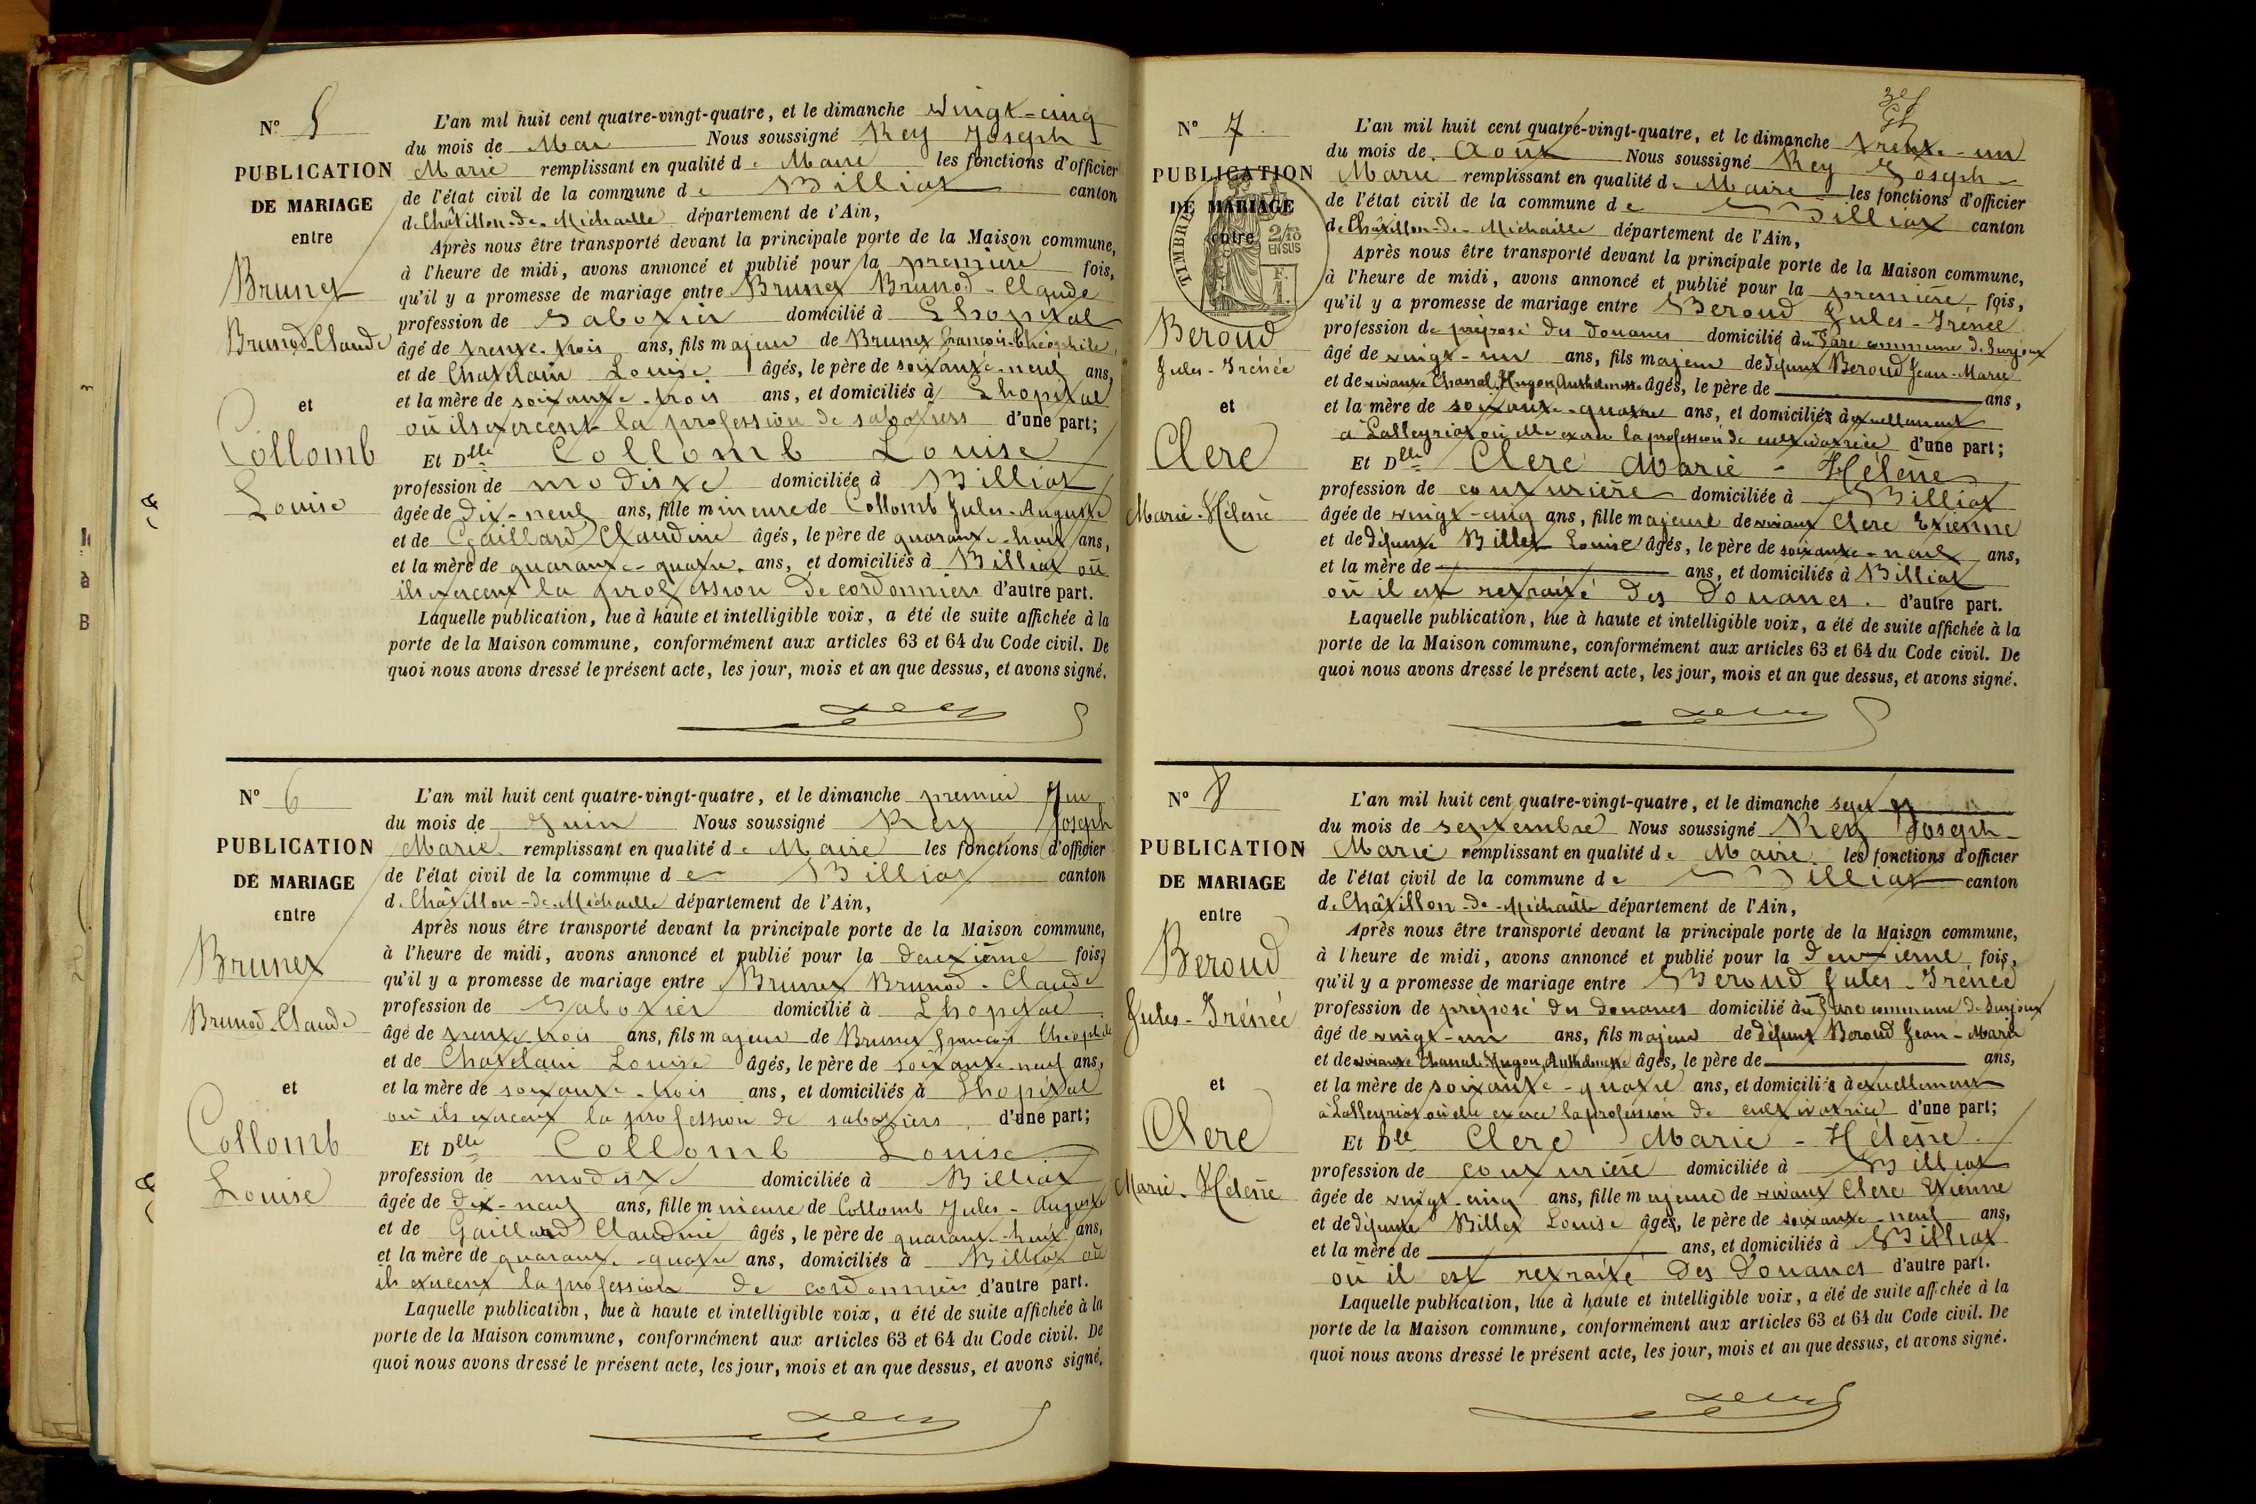 N° 5
PUBLICATION
DE MARIAGE
entre
Brunet
Brunod-Claude
et
Collomb
Louise
L'an mil huit cent quatre-vingt-quatre, et le dimanche vingt-cinq
du mois de Mai Nous soussigné Rey Joseph
Marie remplissant en qualité de Maire les fonctions d'officier
de l'état civil de la commune de Billiat canton
de Châtillon-de-Michaille département de l'Ain,
Après nous être transporté devant la principale porte de la Maison commune,
à l'heure de midi, avons annoncé et publié pour la première fois,
qu'il y a promesse de mariage entre Brunet Brunod-Claude
profession de Sabotier domicilié à Lhopital
âgé de trente-trois ans, fils majeur de Brunet François-Théophile
et de Chatelain Louise âgés, le père de soixante-neuf ans,
et la mère de soixante-trois ans, et domiciliés à Lhopital
où ils exercent la profession de sabotiers d'une part;
Et Dlle Collomb Louise
profession de modiste domiciliée à Billiat
âgée de dix-neuf ans, fille mineure de Collomb Jules-Auguste
et de Gaillard Claudine âgés, le père de quarante-huit ans,
et la mère de quarante-quatre ans, et domiciliés à Billiat où
ils exercent la profession de cordonniers d'autre part.
Laquelle publication, lue à haute et intelligible voix, a été de suite affichée à la
porte de la Maison commune, conformément aux articles 63 et 64 du Code civil. De
quoi nous avons dressé le présent acte, les jour, mois et an que dessus, et avons signé.
Rey
N° 6
PUBLICATION
DE MARIAGE
entre
Brunet
Brunod-Claude
et
Collomb
Louise
L'an mil huit cent quatre-vingt-quatre, et le dimanche premier Jui
du mois de Juin Nous soussigné Rey Joseph
Marie remplissant en qualité de Maire les fonctions d'officier
de l'état civil de la commune de Billiat canton
de Châtillon-de-Michaille département de l'Ain,
Après nous être transporté devant la principale porte de la Maison commune,
à l'heure de midi, avons annoncé et publié pour la deuxième fois,
qu'il y a promesse de mariage entre Brunet Brunod-Claude
profession de Sabotier domicilié à Lhopital
âgé de trente-trois ans, fils majeur de Brunet François Théophile
et de Chatelain Louise âgés, le père de soixante-neuf ans,
et la mère de soixante-trois ans, et domiciliés à Lhopital
où ils exercent la profession de sabotiers d'une part;
Et Dlle Collomb Louise
profession de modiste domiciliée à Billiat
âgée de dix-neuf ans, fille mineure de Collomb Jules-Auguste
et de Gaillard Claudine âgés, le père de quarante-huit ans,
et la mère de quarante-quatre ans, domiciliés à Billiat où
ils exercent la profession de cordonniers d'autre part.
Laquelle publication, lue à haute et intelligible voix, a été de suite affichée à la
porte de la Maison commune, conformément aux articles 63 et 64 du Code civil. De
quoi nous avons dressé le présent acte, les jour, mois et an que dessus, et avons signé.
Rey
N° 7
PUBLICATION
DE MARIAGE
entre
TIMBRE
2/10
EN SUS
F.
1.
Beroud
Jules-Irénée
et
Clerc
Marie-Hélène
L'an mil huit cent quatre-vingt-quatre, et le dimanche trente-un
du mois de Août Nous soussigné Rey Joseph
Marie remplissant en qualité de Maire les fonctions d'officier
de l'état civil de la commune de Billiat canton
de Châtillon-de-Michaille département de l'Ain,
Après nous être transporté devant la principale porte de la Maison commune,
à l'heure de midi, avons annoncé et publié pour la première fois,
qu'il y a promesse de mariage entre Beroud Jules-Irénée
profession de préposé des douanes domicilié à la gare commune de Surjoux
âgé de vingt-un ans, fils majeur de défunt Beroud Jean-Marie
et de vivante Chanal-Hugon Anthelmette âgés, le père de ans,
et la mère de soixante-quatre ans, et domiciliés actuellement
à Lalleyriat où elle exerce la profession de cultivatrice d'une part;
Et Dlle Clerc Marie-Hélène
profession de couturière domiciliée à Billiat
âgée de vingt-cinq ans, fille majeure de vivant Clerc Etienne
et de défunte Billet Louise âgés, le père de soixante-neuf ans,
et la mère de ans, et domiciliés à Billiat
où il est retraité des Douanes. d'autre part.
Laquelle publication, lue à haute et intelligible voix, a été de suite affichée à la
porte de la Maison commune, conformément aux articles 63 et 64 du Code civil. De
quoi nous avons dressé le présent acte, les jour, mois et an que dessus, et avons signé.
Rey
N° 8
PUBLICATION
DE MARIAGE
entre
Beroud
Jules-Irénée
et
Clerc
Marie-Hélène
L'an mil huit cent quatre-vingt-quatre, et le dimanche sept
du mois de septembre Nous soussigné Rey Joseph-
Marie remplissant en qualité de Maire les fonctions d'officier
de l'état civil de la commune de Billiat canton
de Châtillon-de-Michaille département de l'Ain,
Après nous être transporté devant la principale porte de la Maison commune,
à l'heure de midi, avons annoncé et publié pour la deuxième fois,
qu'il y a promesse de mariage entre Beroud Jules-Irénée
profession de préposé des douanes domicilié à la gare commune de Surjoux
âgé de vingt-un ans, fils majeur de défunt Beroud Jean-Marie
et de vivante Chanal-Hugon Anthelmette âgés, le père de ans,
et la mère de soixante-quatre ans, et domiciliés actuellement
à Lalleyriat où elle exerce la profession de cultivatrice d'une part;
Et Dlle Clerc Marie-Hélène
profession de couturière domiciliée à Billiat
âgée de vingt-cinq ans, fille majeure de vivant Clerc Etienne
et de défunte Billet Louise âgés, le père de soixante-neuf ans,
et la mère de ans, et domiciliés à Billiat
où il est retraité des Douanes d'autre part.
Laquelle publication, lue à haute et intelligible voix, a été de suite affichée à la
porte de la Maison commune, conformément aux articles 63 et 64 du Code civil. De
quoi nous avons dressé le présent acte, les jour, mois et an que dessus, et avons signé.
Rey